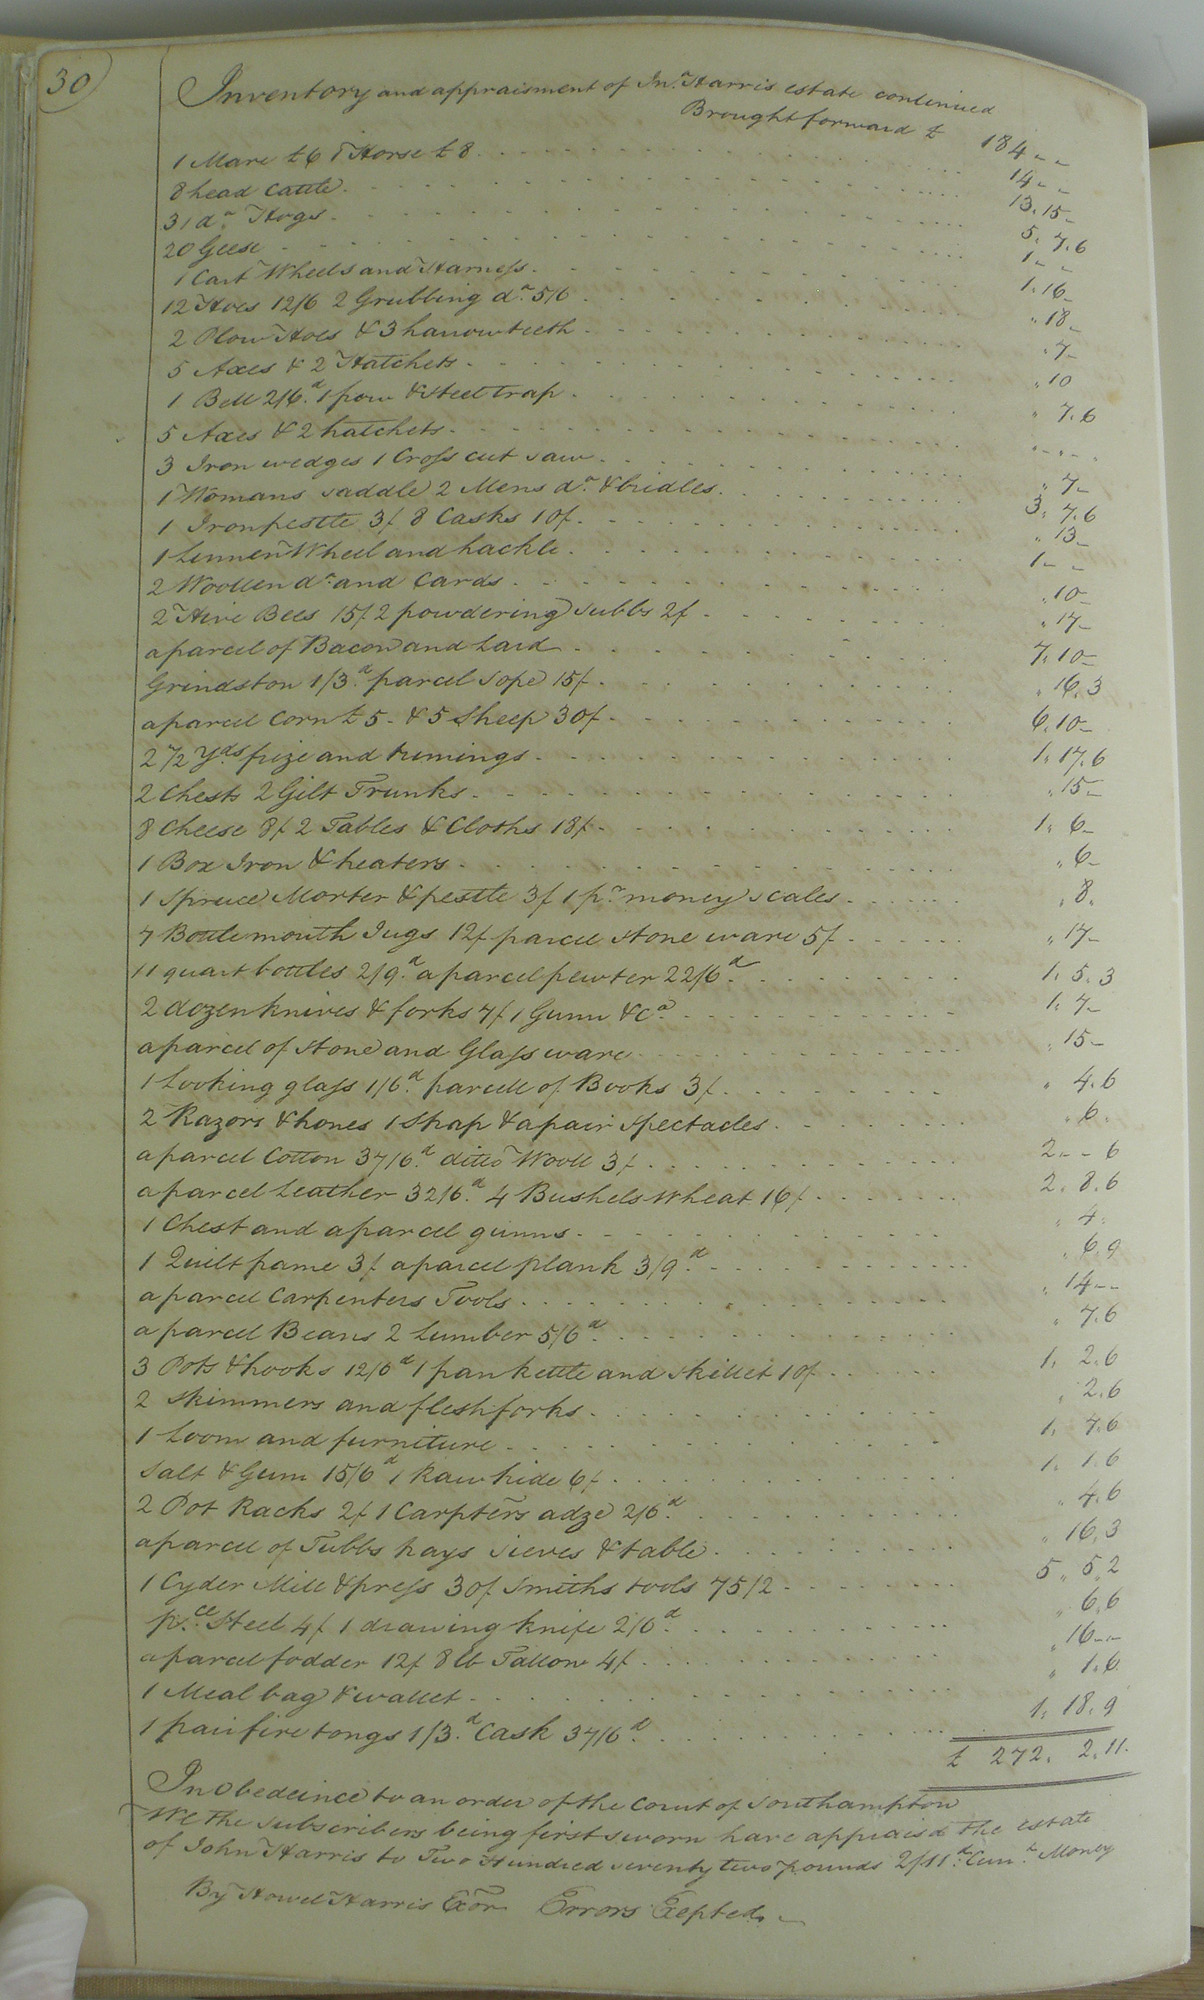 30
Inventory and appraisment of Jnº Harris estate continued
Brought forward £ 184 - -
1 Mare £6 1 Horse £8 14 - -
8 head Cattle 13. 15 -
31 dº Hogs 5. 7. 6
20 Geese 1 - -
1 Cart Wheels and Harness 1. 16 -
12 Hoes 12/6 2 Grubbing dº 5/6 " 18 -
2 Plow Hoes & 3 harrow teeth " 7 -
5 Axes & 2 Hatchets " 10
1 Bell 2/6d 1 pow & steel trap " 7. 6
5 Axes & 2 hatchets " - " - "
3 Iron wedges 1 Cross cut saw " 7 -
1 Womans saddle 2 Mens dº & bridles 3. 7. 6
1 Iron pestle 3/ 8 Casks 10/ " 13 -
1 Linnen Wheel and hackle 1 - -
2 Woollen dº and Cards " 10 -
2 Hive Bees 15/ 2 powdering tubbs 2/ " 17 -
a parcel of Bacon and Lard 7. 10 -
Grindston 1/3d parcel sope 15/ " 16. 3
a parcel Corn £5 - & 5 Sheep 30/ 6. 10 -
2 1/2 Yds frize and trimings 1. 17. 6
2 Chests 2 Gilt Trunks " 15 -
8 Cheese 8/ 2 Tables & Cloths 18/ 1. 6 -
1 Box Iron & heaters " 6 -
1 Spruce Morter & pestle 3/ 1 pr money scales " 8 "
7 Bottle mouth Jugs 12/ parcel stone ware 5/ " 17 -
11 quart bottles 2/9d a parcel pewter 22/6d 1. 5. 3
2 dozen knives & forks 7/ 1 Gunn &Ca 1. 7 -
a parcel of stone and Glass ware " 15 -
1 Looking glass 1/6d parcell of Books 3/ " 4. 6
2 Razors & hones 1 Strap & a pair Spectacles " 6 "
a parcel Cotton 37/6d ditto Wooll 3/ 2 - - 6
a parcel Leather 32/6d 4 Bushels Wheat 16/ 2. 8. 6
1 Chest and a parcel gunns " 4 "
1 Quilt frame 3/ a parcel plank 3/9d " 6. 9
a parcel Carpenters Tools " 14 - -
a parcel Beans 2 Lumber 5/6d " 7. 6
3 Pots & hooks 12/6d 1 pan kettle and skillet 10/ 1. 2. 6
2 skimmers and fleshforks " 2. 6
1 Loom and furniture 1. 7. 6
Salt & Gum 15/6d 1 Raw hide 6/ 1. 1. 6
2 Pot Racks 2/ 1 Carpters adze 2/6d " 4. 6
a parcel of Tubbs trays sieves & table " 16. 3
1 Cyder Mill & press 30/ Smiths tools 75/2 5. 5. 2
pce Steel 4/ 1 drawing knife 2/6d " 6. 6
a parcel fodder 12/ 8 lb Tallow 4/ " 16 - -
1 Meal bag & wallet " 1. 6
1 pair fire tongs 1/3d Cask 37/6d 1. 18. 9
£ 272. 2. 11.
In obedeince to an order of the Court of Southampton
We the subscribers being first sworn have appraisd the estate
of John Harris to Two Hundred seventy two pounds 2/11d Curr.t Money
By Howel Harris Exor Errors Exepted. -